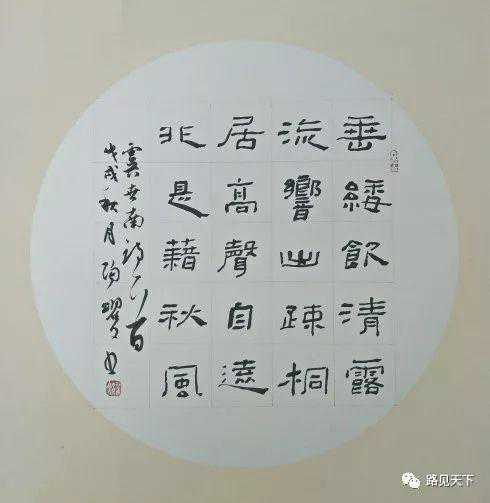 垂緌飲清露
流響出疎桐
居高聲自遠
非是藉秋風
虞世南詩一首
戊戌秋月
路见天下